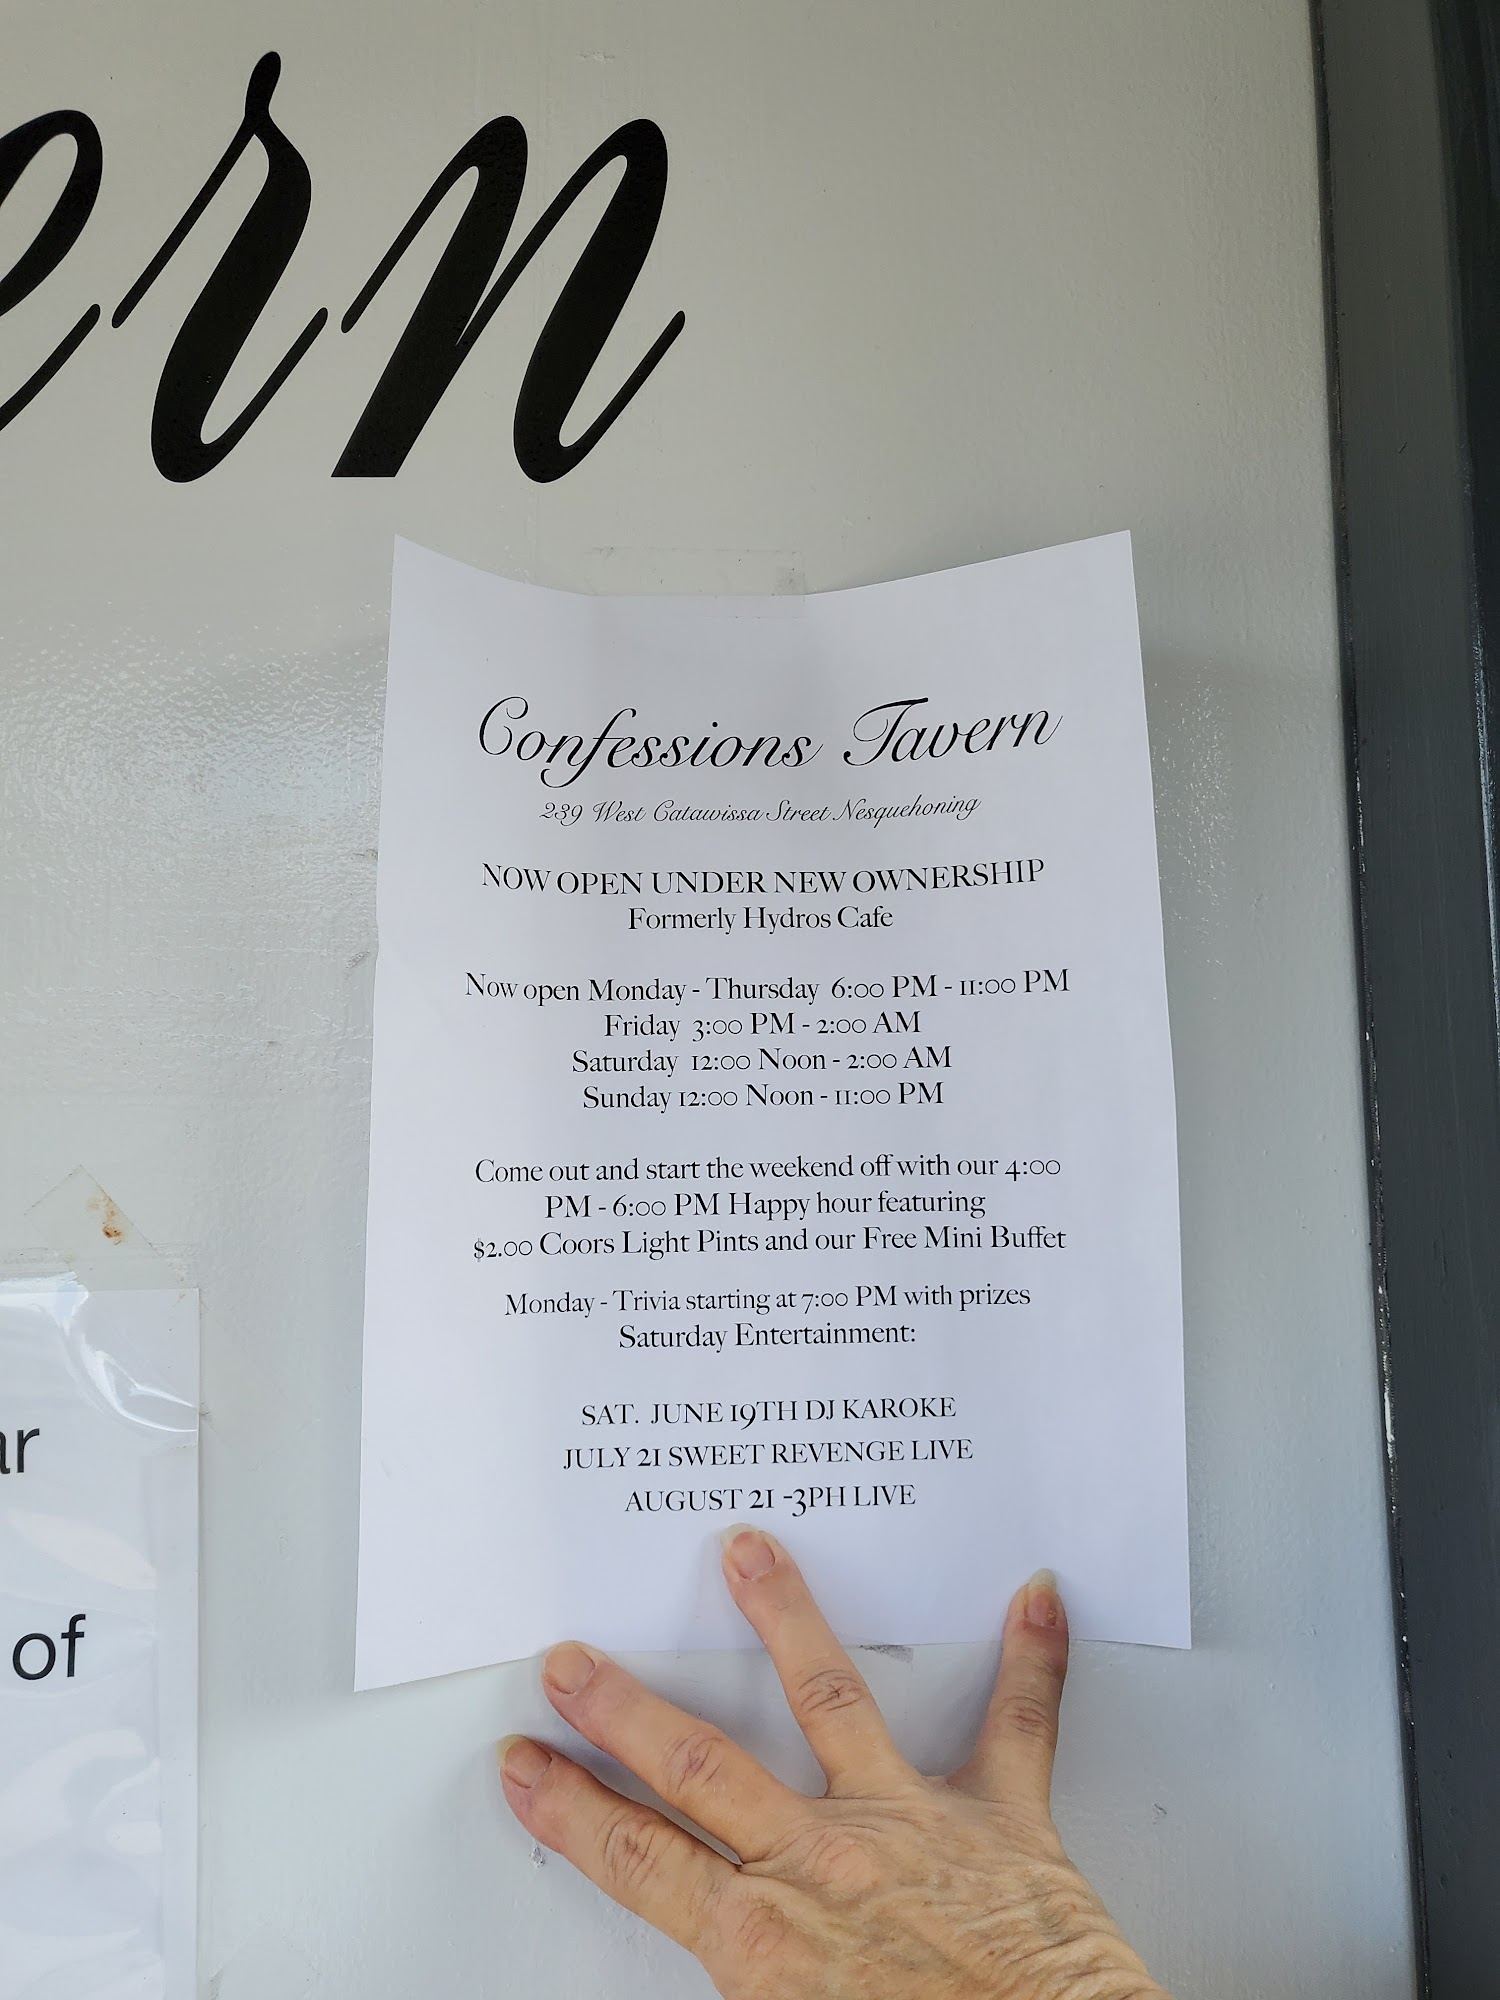 ern
Confessions Tavern
239 West Catawissa Street Nesquehoning
NOW OPEN UNDER NEW OWNERSHIP
Formerly Hydros Cafe
Now open Monday - Thursday 6:00 PM - 11:00 PM
Friday 3:00 PM - 2:00 AM
Saturday 12:00 Noon - 2:00 AM
Sunday 12:00 Noon - 11:00 PM
Come out and start the weekend off with our 4:00
PM - 6:00 PM Happy hour featuring
$2.00 Coors Light Pints and our Free Mini Buffet
Monday - Trivia starting at 7:00 PM with prizes
Saturday Entertainment:
SAT. JUNE 19TH DJ KAROKE
JULY 21 SWEET REVENGE LIVE
AUGUST 21 -3PH LIVE
ar
of